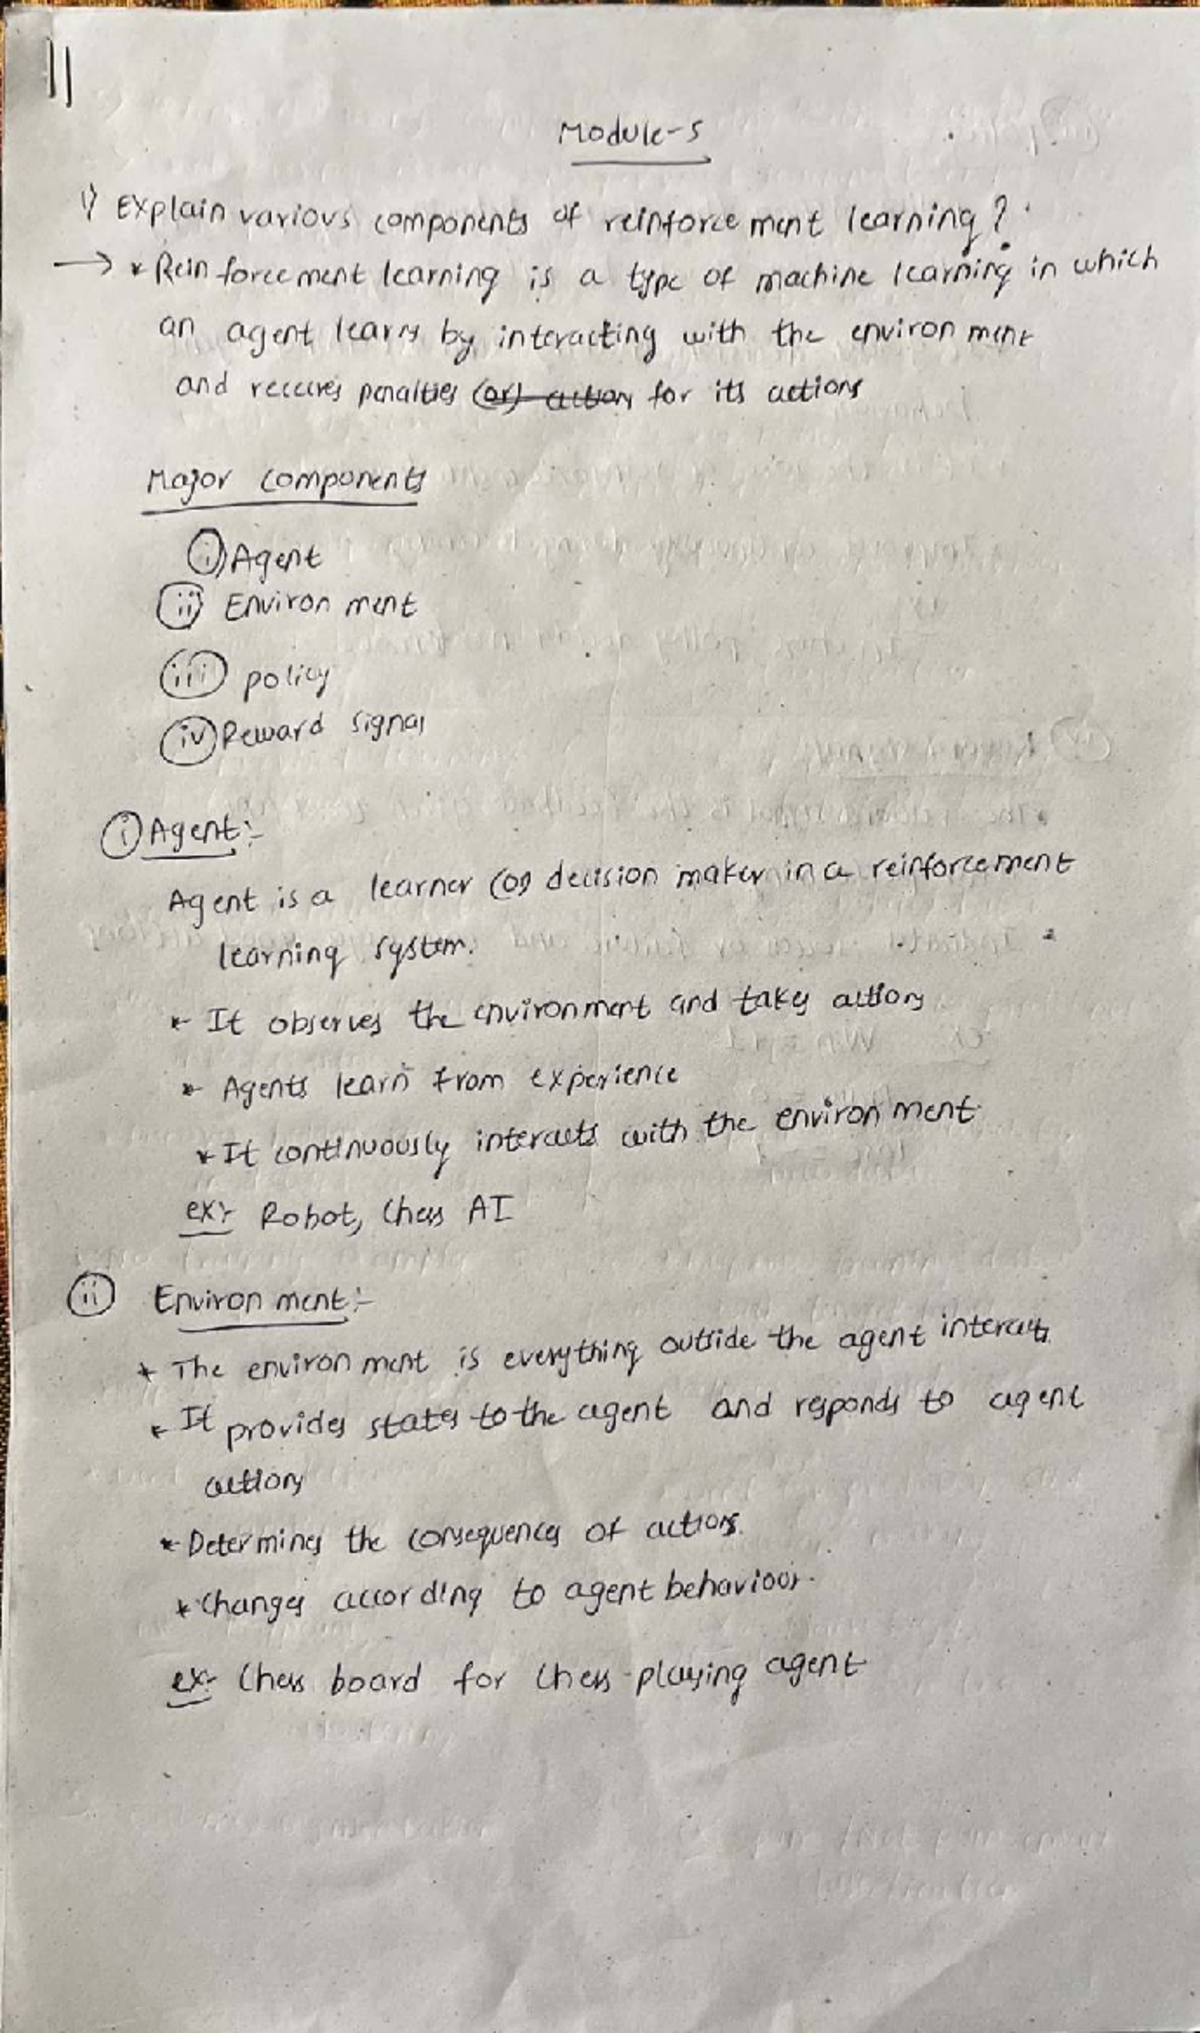 11
Module-5
1) Explain various components of reinforcement learning?
→ * Reinforcement learning is a type of machine learning in which
an agent learns by interacting with the environment
and receives penalties (or) action for its actions
Major components
(i) Agent
(ii) Environment
(iii) policy
(iv) Reward signal
(i) Agent:-
Agent is a learner (or) decision maker in a reinforcement
learning system.
* It observes the environment and takes actions
* Agents learn from experience
* It continuously interacts with the environment
ex:- Robot, Chess AI
(ii) Environment:-
* The environment is everything outside the agent interacts
* It provides states to the agent and responds to agent
actions
* Determines the consequences of actions.
* Changes according to agent behaviour.
ex:- Chess board for Chess-playing agent